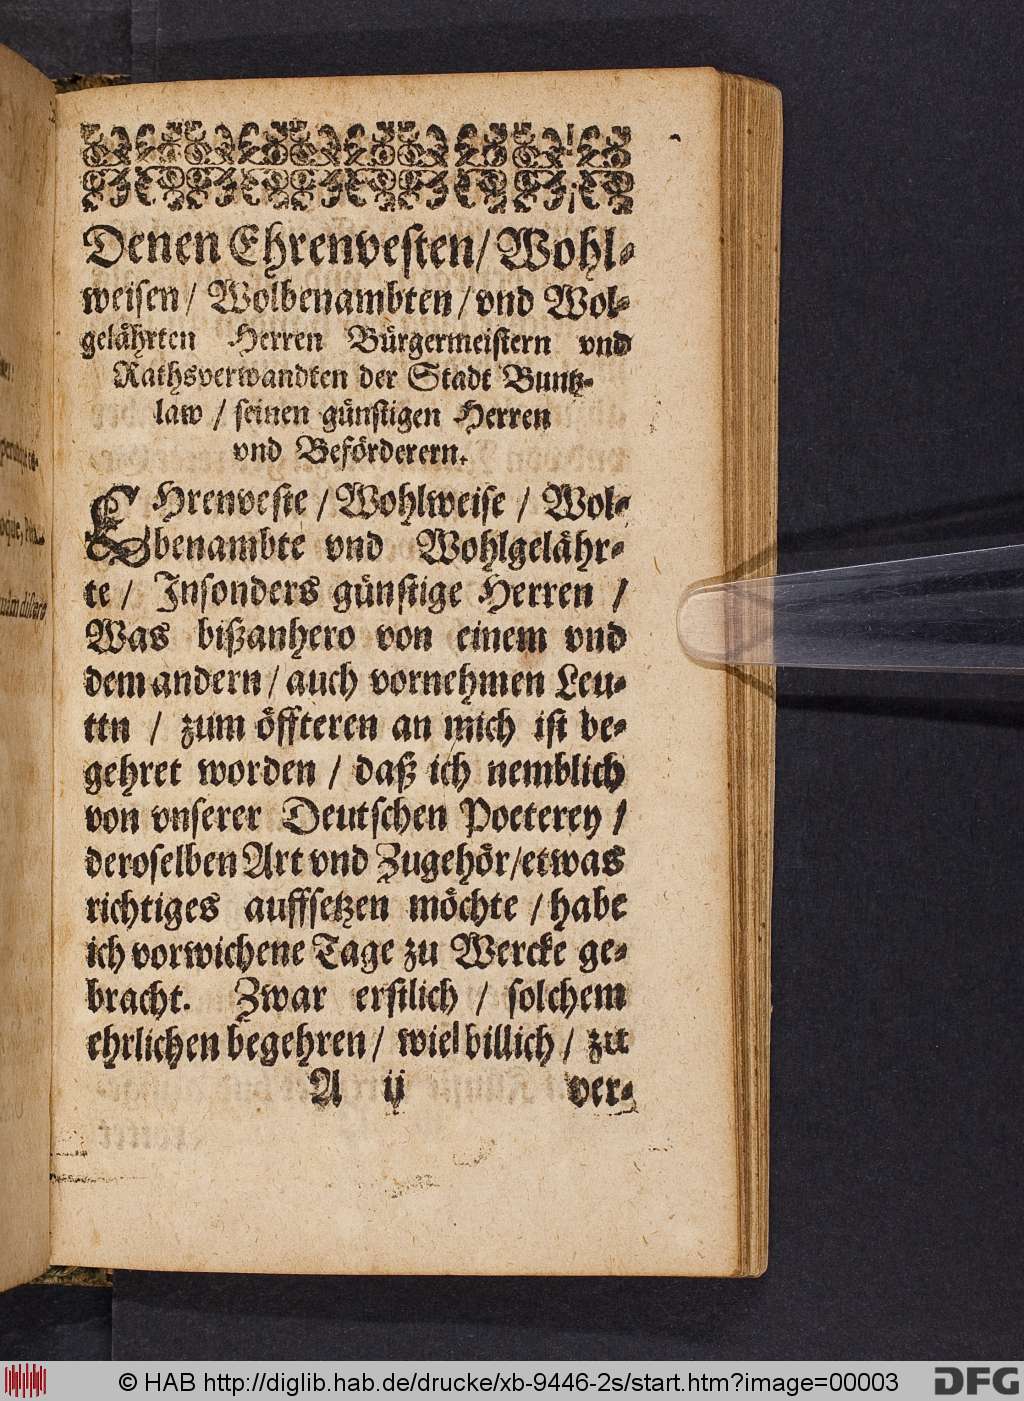 Denen Ehrenvesten/ Wohl-
weisen/ Wolbenambten/ vnd Wol-
gelährten Herren Bürgermeistern vnd
Rathsverwandten der Stadt Buntz-
law / seinen günstigen Herren
vnd Beförderern.
EHrenveste / Wohlweise / Wol-
benambte vnd Wohlgelähr-
te / Insonders günstige Herren /
Was bißanhero von einem vnd
dem andern / auch vornehmen Leu-
ttn / zum öffteren an mich ist be-
gehret worden / daß ich nemblich
von vnserer Deutschen Poeterey /
deroselben Art vnd Zugehör/etwas
richtiges auffsetzen möchte / habe
ich vorwichene Tage zu Wercke ge-
bracht. Zwar erstlich / solchem
ehrlichen begehren / wie billich / zu
A ij ver-
© HAB http://diglib.hab.de/drucke/xb-9446-2s/start.htm?image=00003
DFG